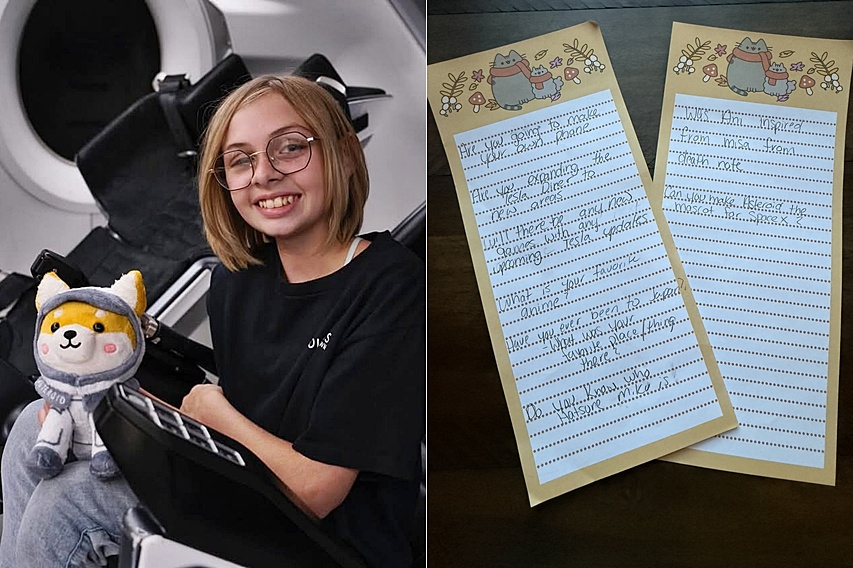 Are you going to make
your own phone
Are you expanding the
Tesla Diner to
new areas
Will there be any new
games with any
upcoming Tesla updates
What is your favorite
anime
Have you ever been to
What was your
favorite place/thing
there?
Do you know who
Hatsune Miku is?
Was Ani inspired
from misa from
death note
Can you make Asteroid the
mascot for SpaceX?